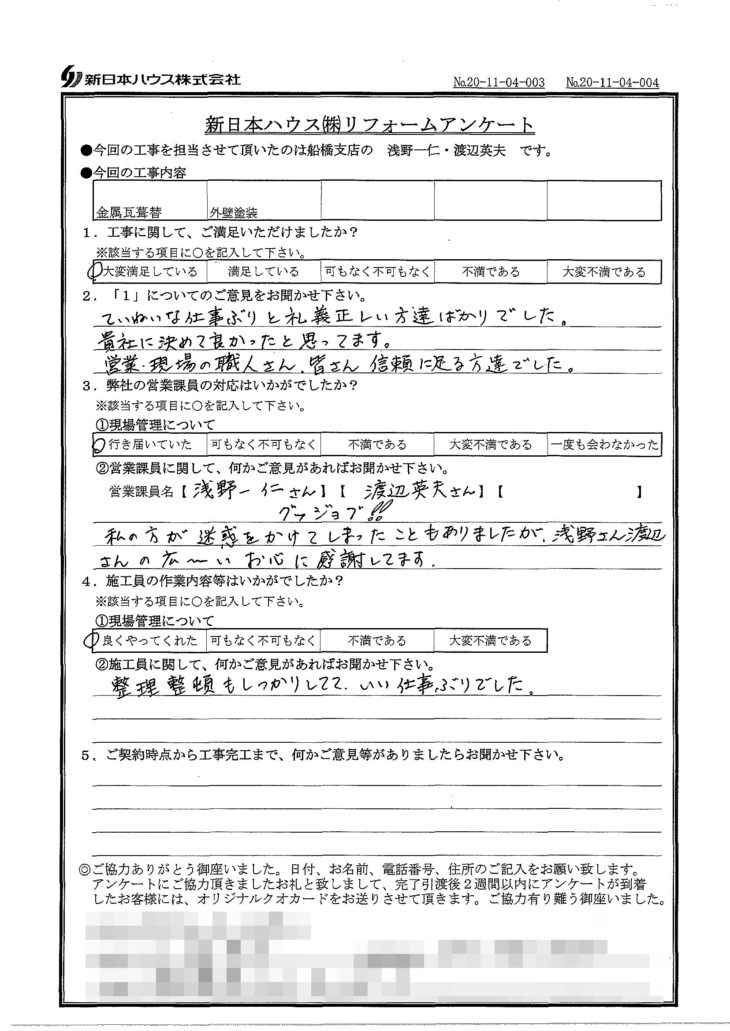 新日本ハウス株式会社
№20-11-04-003 №20-11-04-004
新日本ハウス㈱リフォームアンケート
●今回の工事を担当させて頂いたのは船橋支店の 浅野一仁・渡辺英夫 です。
●今回の工事内容
金属瓦葺替 外壁塗装
1．工事に関して、ご満足いただけましたか？
※該当する項目に○を記入して下さい。
大変満足している 満足している 可もなく不可もなく 不満である 大変不満である
2．「1」についてのご意見をお聞かせ下さい。
ていねいな仕事ぶりと礼義正しい方達ばかりでした。
貴社に決めて良かったと思ってます。
営業・現場の職人さん、皆さん信頼に足る方達でした。
3．弊社の営業課員の対応はいかがでしたか？
※該当する項目に○を記入して下さい。
①現場管理について
行き届いていた 可もなく不可もなく 不満である 大変不満である 一度も会わなかった
②営業課員に関して、何かご意見があればお聞かせ下さい。
営業課員名【浅野一仁さん】【 渡辺英夫さん】【 】
グッジョブ!!
私の方が迷惑をかけてしまったこともありましたが、浅野さん渡辺
さんの広〜いお心に感謝してます.
4．施工員の作業内容等はいかがでしたか？
※該当する項目に○を記入して下さい。
①現場管理について
良くやってくれた 可もなく不可もなく 不満である 大変不満である
②施工員に関して、何かご意見があればお聞かせ下さい。
整理整頓もしっかりしてて、いい仕事ぶりでした。
5．ご契約時点から工事完工まで、何かご意見等がありましたらお聞かせ下さい。
◎ご協力ありがとう御座いました。日付、お名前、電話番号、住所のご記入をお願い致します。
アンケートにご協力頂きましたお礼と致しまして、完了引渡後2週間以内にアンケートが到着
したお客様には、オリジナルクオカードをお送りさせて頂きます。ご協力有り難う御座いました。